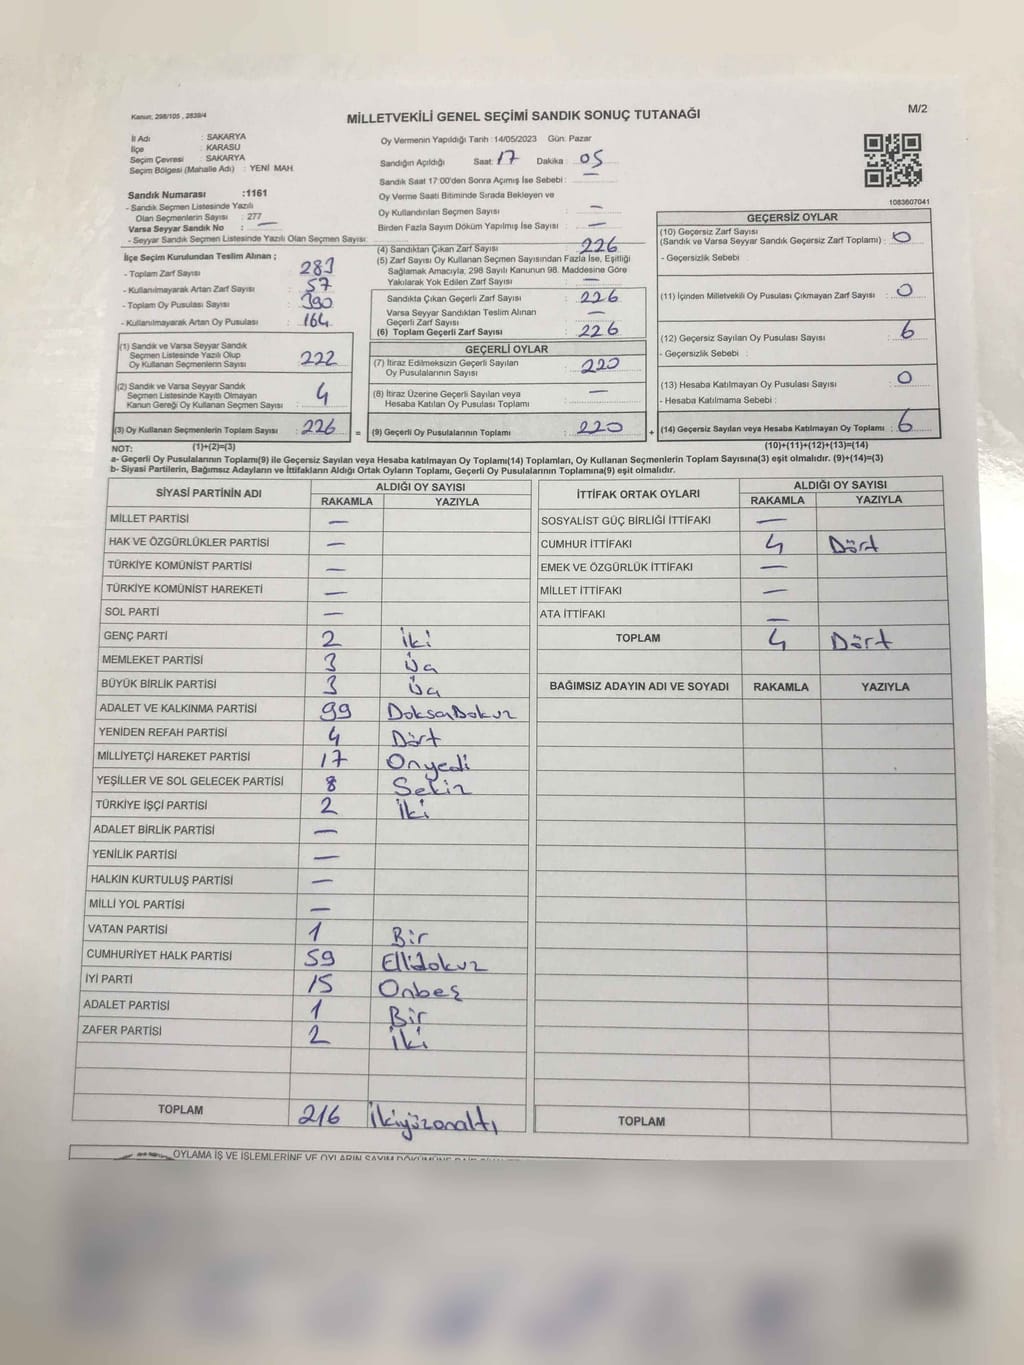 Kanun; 298/105 , 2839/4
MİLLETVEKİLİ GENEL SEÇİMİ SANDIK SONUÇ TUTANAĞI
M/2
İl Adı : SAKARYA
İlçe : KARASU
Seçim Çevresi : SAKARYA
Seçim Bölgesi (Mahalle Adı) : YENİ MAH.
Sandık Numarası :1161
- Sandık Seçmen Listesinde Yazılı
Olan Seçmenlerin Sayısı : 277
Varsa Seyyar Sandık No : —
- Seyyar Sandık Seçmen Listesinde Yazılı Olan Seçmen Sayısı:
Oy Vermenin Yapıldığı Tarih :14/05/2023 Gün: Pazar
Sandığın Açıldığı Saat: 17 Dakika : 05
Sandık Saat 17:00'den Sonra Açımış İse Sebebi : —
Oy Verme Saati Bitiminde Sırada Bekleyen ve
Oy Kullandırılan Seçmen Sayısı : —
Birden Fazla Sayım Döküm Yapılmış İse Sayısı : —
1083607041
İlçe Seçim Kurulundan Teslim Alınan ;
- Toplam Zarf Sayısı : 283
- Kullanılmayarak Artan Zarf Sayısı : 57
- Toplam Oy Pusulası Sayısı : 390
- Kullanılmayarak Artan Oy Pusulası : 164
(1) Sandık ve Varsa Seyyar Sandık
Seçmen Listesinde Yazılı Olup
Oy Kullanan Seçmenlerin Sayısı : 222
(2) Sandık ve Varsa Seyyar Sandık
Seçmen Listesinde Kayıtlı Olmayan
Kanun Gereği Oy Kullanan Seçmen Sayısı : 4
(3) Oy Kullanan Seçmenlerin Toplam Sayısı : 226
(4) Sandıktan Çıkan Zarf Sayısı : 226
(5) Zarf Sayısı Oy Kullanan Seçmen Sayısından Fazla İse, Eşitliği
Sağlamak Amacıyla, 298 Sayılı Kanunun 98. Maddesine Göre
Yakılarak Yok Edilen Zarf Sayısı : —
Sandıkta Çıkan Geçerli Zarf Sayısı : 226
Varsa Seyyar Sandıktan Teslim Alınan
Geçerli Zarf Sayısı : —
(6) Toplam Geçerli Zarf Sayısı : 226
GEÇERLİ OYLAR
(7) İtiraz Edilmeksizin Geçerli Sayılan
Oy Pusulalarının Sayısı : 220
(8) İtiraz Üzerine Geçerli Sayılan veya
Hesaba Katılan Oy Pusulası Toplamı : —
= (9) Geçerli Oy Pusulalarının Toplamı : 220
GEÇERSİZ OYLAR
(10) Geçersiz Zarf Sayısı
(Sandık ve Varsa Seyyar Sandık Geçersiz Zarf Toplamı) : 0
- Geçersizlik Sebebi :
(11) İçinden Milletvekili Oy Pusulası Çıkmayan Zarf Sayısı : 0
(12) Geçersiz Sayılan Oy Pusulası Sayısı : 6
- Geçersizlik Sebebi :
(13) Hesaba Katılmayan Oy Pusulası Sayısı : 0
- Hesaba Katılmama Sebebi :
+ (14) Geçersiz Sayılan veya Hesaba Katılmayan Oy Toplamı : 6
NOT: (1)+(2)=(3)
(10)+(11)+(12)+(13)=(14)
a- Geçerli Oy Pusulalarının Toplamı(9) ile Geçersiz Sayılan veya Hesaba Katılmayan Oy Toplamı(14) Toplamları, Oy Kullanan Seçmenlerin Toplam Sayısına(3) eşit olmalıdır. (9)+(14)=(3)
b- Siyasi Partilerin, Bağımsız Adayların ve İttifakların Aldığı Ortak Oyların Toplamı, Geçerli Oy Pusulalarının Toplamına(9) eşit olmalıdır.
SİYASİ PARTİNİN ADI ALDIĞI OY SAYISI
RAKAMLA YAZIYLA
MİLLET PARTİSİ —
HAK VE ÖZGÜRLÜKLER PARTİSİ —
TÜRKİYE KOMÜNİST PARTİSİ —
TÜRKİYE KOMÜNİST HAREKETİ —
SOL PARTİ —
GENÇ PARTİ 2 İki
MEMLEKET PARTİSİ 3 Üç
BÜYÜK BİRLİK PARTİSİ 3 Üç
ADALET VE KALKINMA PARTİSİ 99 DoksanDokuz
YENİDEN REFAH PARTİSİ 4 Dört
MİLLİYETÇİ HAREKET PARTİSİ 17 Onyedi
YEŞİLLER VE SOL GELECEK PARTİSİ 8 Sekiz
TÜRKİYE İŞÇİ PARTİSİ 2 İki
ADALET BİRLİK PARTİSİ —
YENİLİK PARTİSİ —
HALKIN KURTULUŞ PARTİSİ —
MİLLİ YOL PARTİSİ —
VATAN PARTİSİ 1 Bir
CUMHURİYET HALK PARTİSİ 59 Ellidokuz
İYİ PARTİ 15 Onbeş
ADALET PARTİSİ 1 Bir
ZAFER PARTİSİ 2 İki
TOPLAM 216 İkiyüzonaltı
İTTİFAK ORTAK OYLARI ALDIĞI OY SAYISI
RAKAMLA YAZIYLA
SOSYALİST GÜÇ BİRLİĞİ İTTİFAKI —
CUMHUR İTTİFAKI 4 Dört
EMEK VE ÖZGÜRLÜK İTTİFAKI —
MİLLET İTTİFAKI —
ATA İTTİFAKI —
TOPLAM 4 Dört
BAĞIMSIZ ADAYIN ADI VE SOYADI RAKAMLA YAZIYLA
TOPLAM
OYLAMA İŞ VE İŞLEMLERİNE VE OYLARIN SAYIM DÖKÜMÜNE